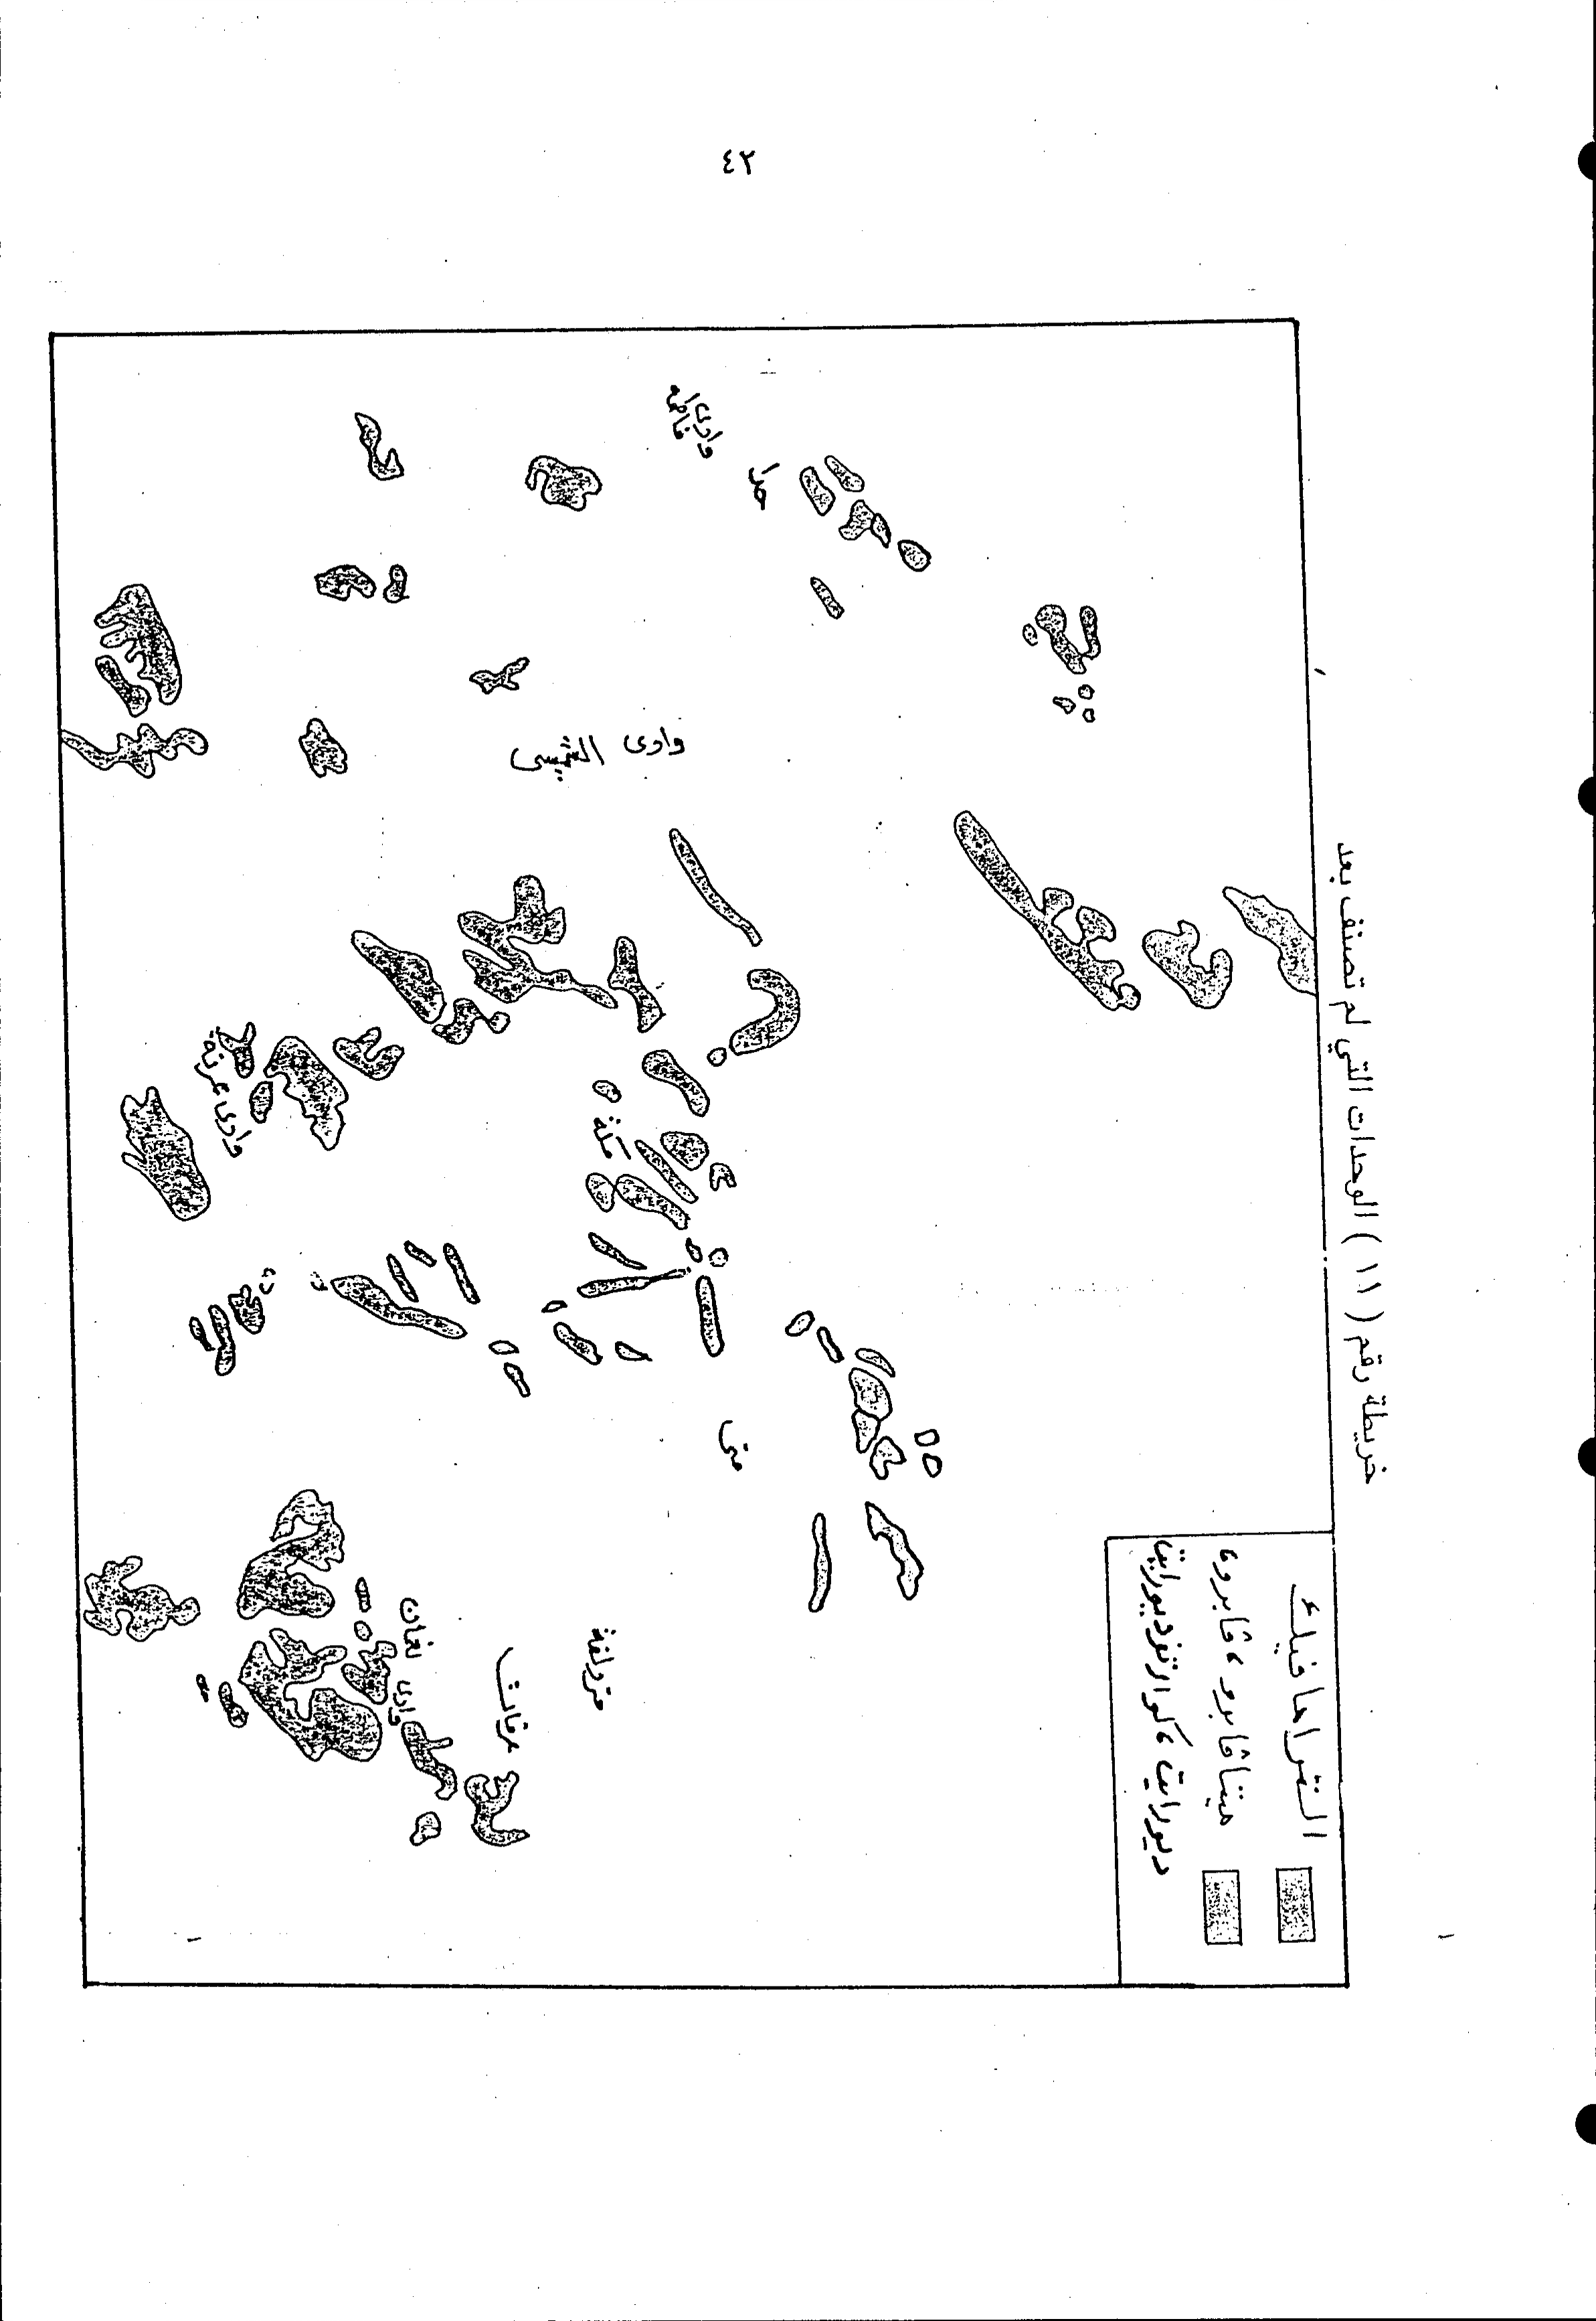 ٤٢
خريطة رقم ( ١١ ) الوحدات التي لم تصنف بعد
الترامافيك
ميتاقابرو ، قابرو ،
ديورايت ، كوارتزديورايت
وادى
فاطمة
وادى الشميسى
وادى عرنة
مكة
منى
مزدلفة
عرفات
وادى نعمان